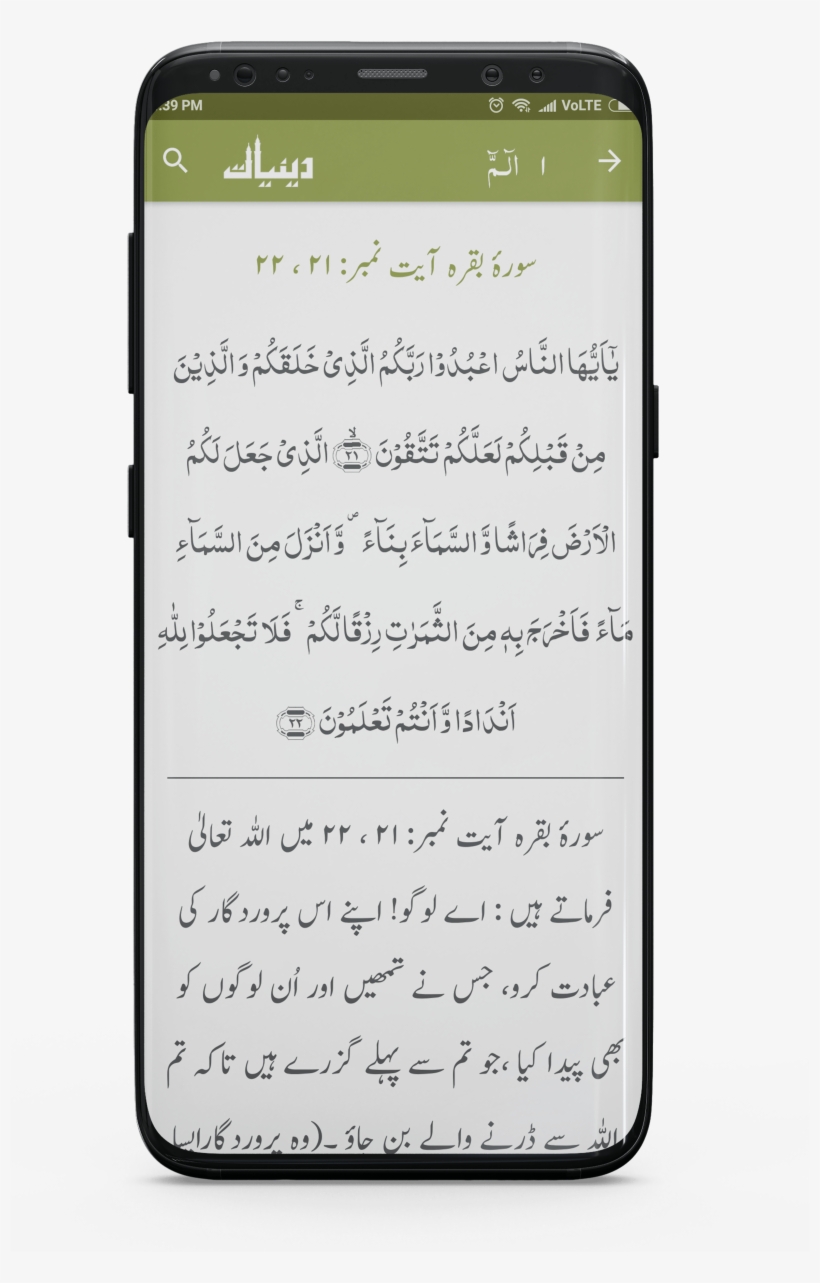 :39 PM VoLTE
دینیات ۱ الٓمّٓ
سورۂ بقرہ آیت نمبر: ۲۱ ، ۲۲
یٰۤاَیُّهَا النَّاسُ اعْبُدُوْا رَبَّكُمُ الَّذِیْ خَلَقَكُمْ وَ الَّذِیْنَ
مِنْ قَبْلِكُمْ لَعَلَّكُمْ تَتَّقُوْنَ ۙ﴿۲۱﴾ الَّذِیْ جَعَلَ لَكُمُ
الْاَرْضَ فِرَاشًا وَّ السَّمَآءَ بِنَآءً ۪ وَّ اَنْزَلَ مِنَ السَّمَآءِ
مَآءً فَاَخْرَجَ بِهٖ مِنَ الثَّمَرٰتِ رِزْقًا لَّكُمْ ۚ فَلَا تَجْعَلُوْا لِلّٰهِ
اَنْدَادًا وَّ اَنْتُمْ تَعْلَمُوْنَ ﴿۲۲﴾
سورۂ بقرہ آیت نمبر: ۲۱ ، ۲۲ میں اللہ تعالیٰ
فرماتے ہیں : اے لوگو! اپنے اس پروردگار کی
عبادت کرو، جس نے تمھیں اور اُن لوگوں کو
بھی پیدا کیا ،جو تم سے پہلے گزرے ہیں تاکہ تم
اللہ سے ڈرنے والے بن جاؤ ۔(وہ پروردگارایسا